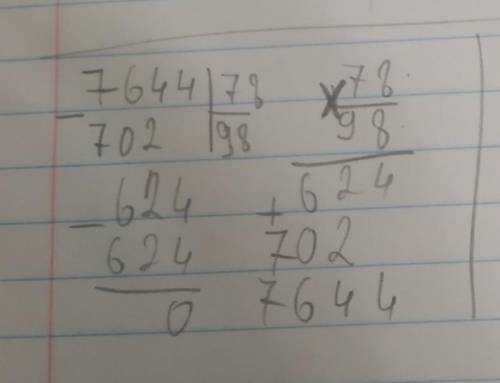 7644 | 78
− 702 | 98
− 624
624
0
× 78
98
+ 624
702
7644